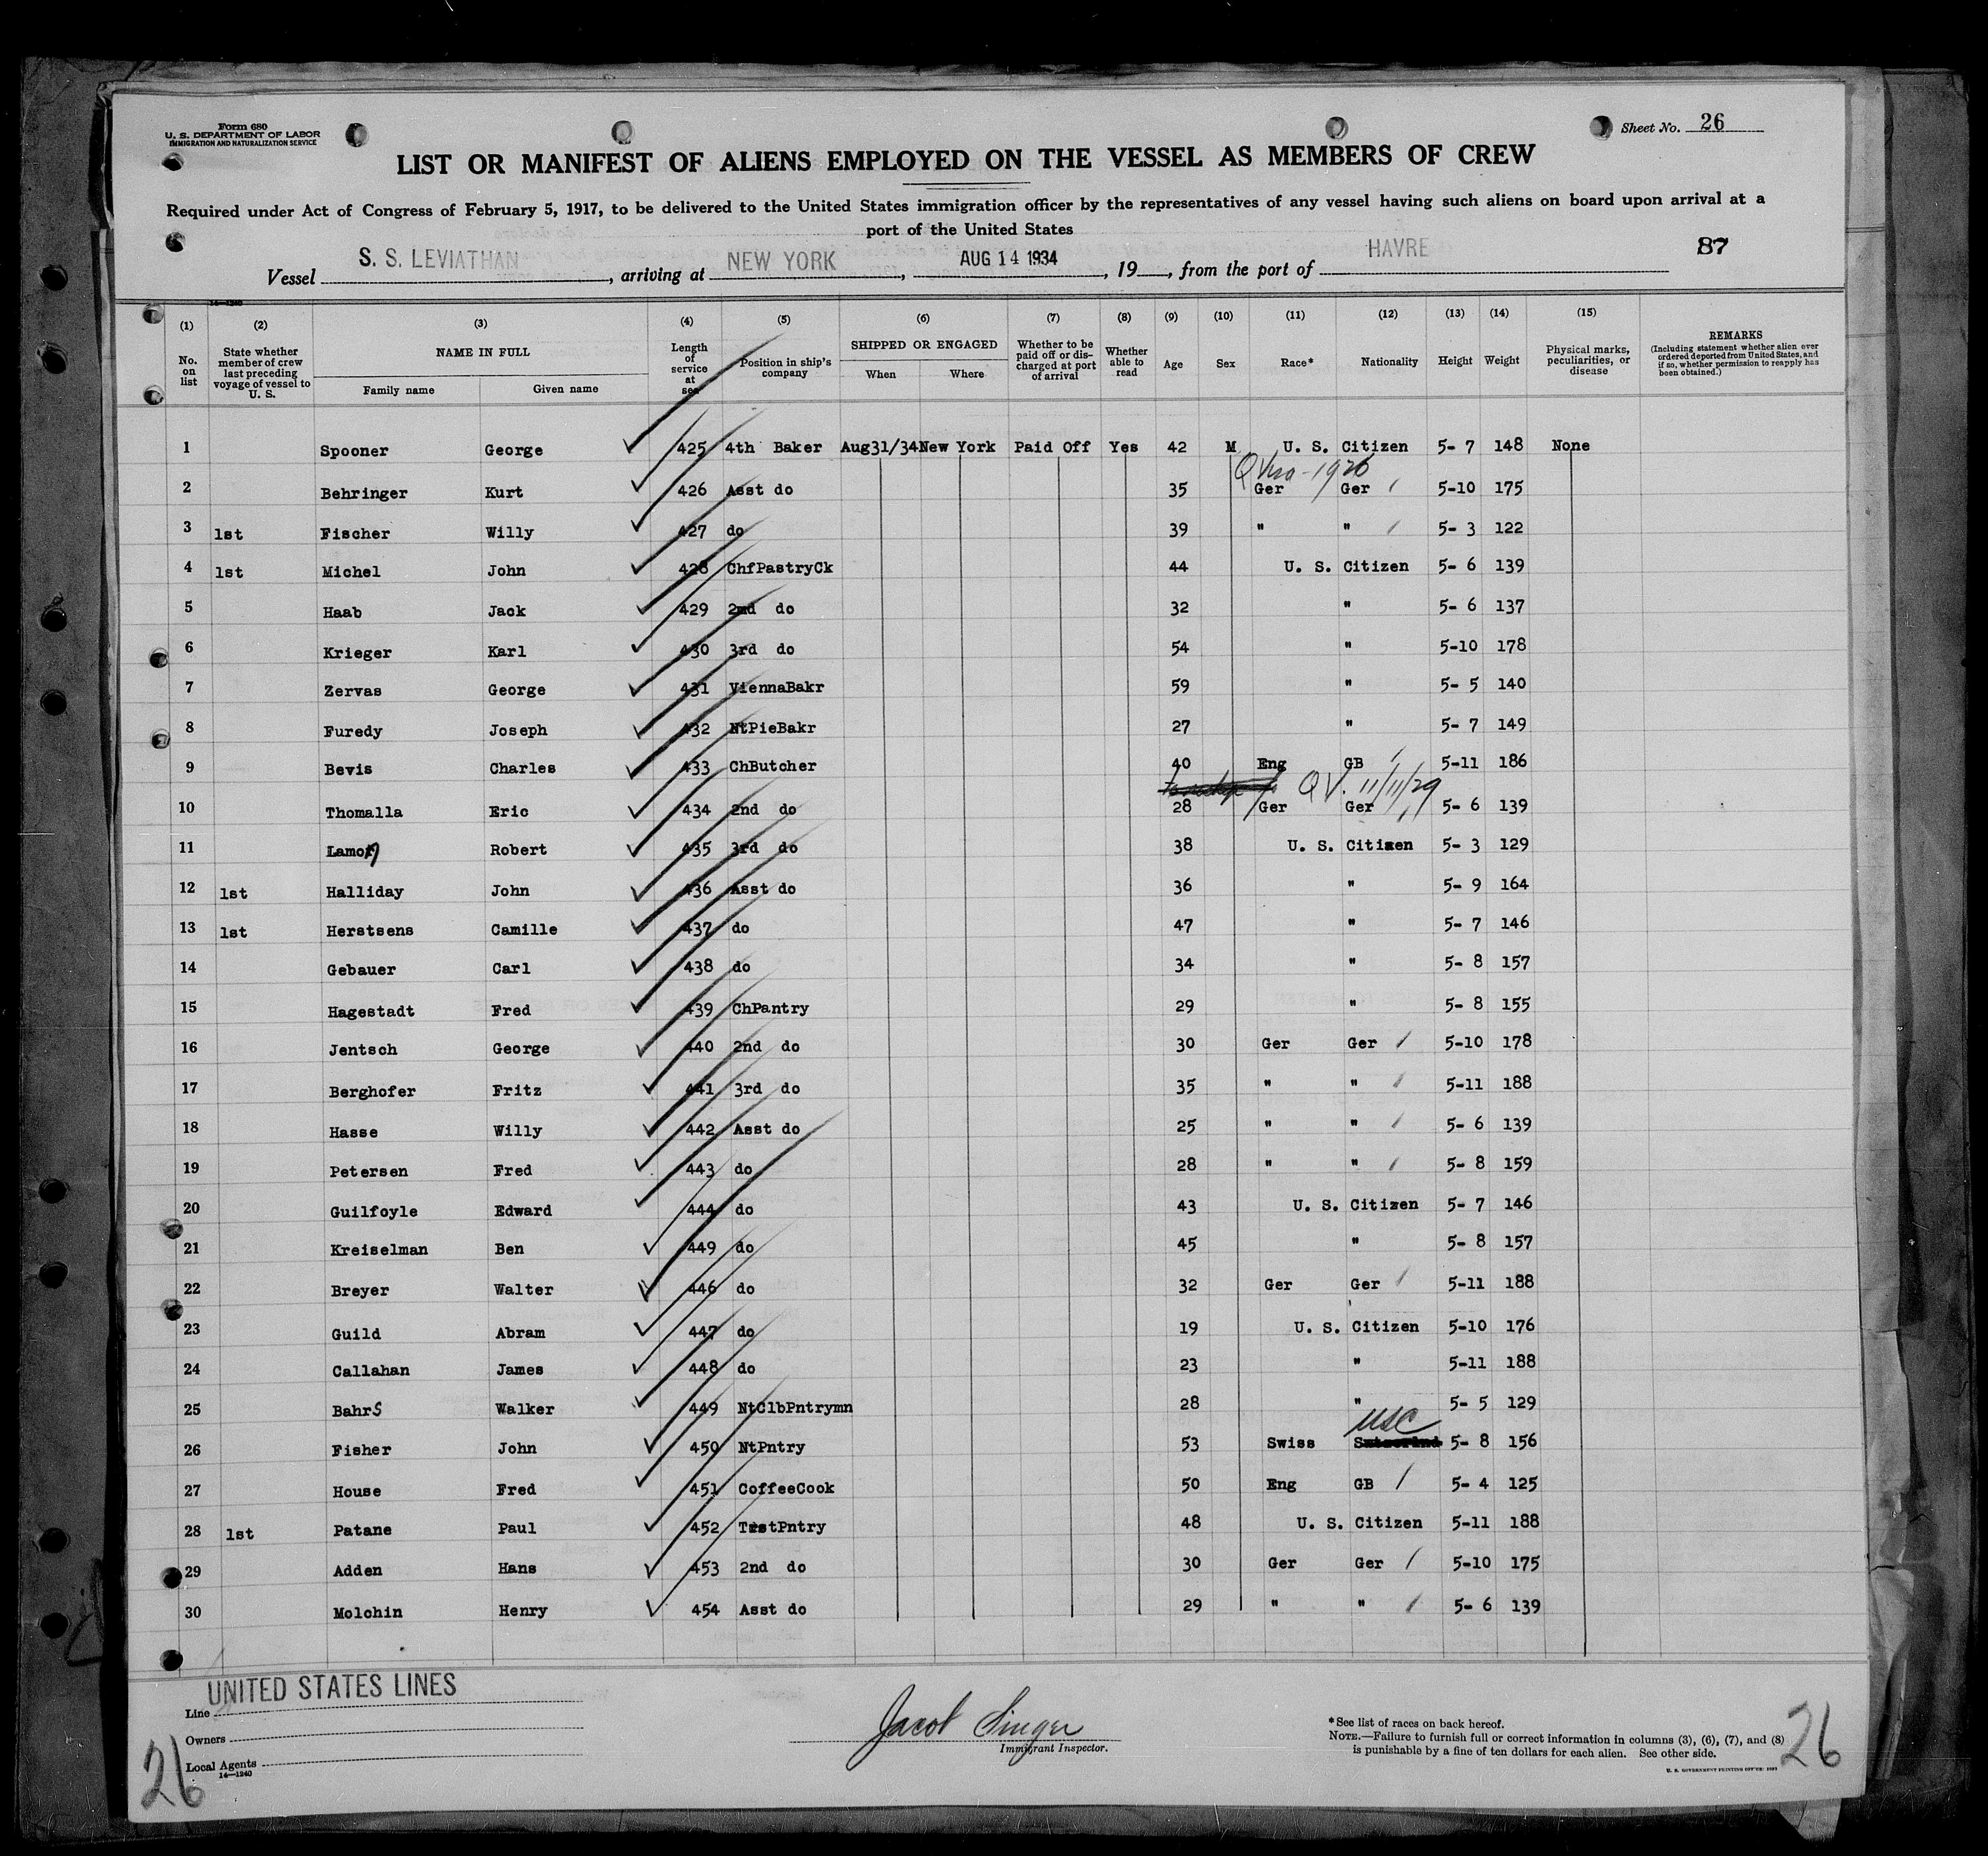 Form 680
U. S. DEPARTMENT OF LABOR
IMMIGRATION AND NATURALIZATION SERVICE
Sheet No. 26
LIST OR MANIFEST OF ALIENS EMPLOYED ON THE VESSEL AS MEMBERS OF CREW
Required under Act of Congress of February 5, 1917, to be delivered to the United States immigration officer by the representatives of any vessel having such aliens on board upon arrival at a
port of the United States
87
Vessel S. S. LEVIATHAN, arriving at NEW YORK, AUG 14 1934, 19__, from the port of HAVRE
14—1240
(1) (2) (3) (4) (5) (6) (7) (8) (9) (10) (11) (12) (13) (14) (15)
No. on list
State whether member of crew last preceding voyage of vessel to U. S.
NAME IN FULL
Family name Given name
Length of service at sea
Position in ship's company
SHIPPED OR ENGAGED
When Where
Whether to be paid off or discharged at port of arrival
Whether able to read
Age
Sex
Race*
Nationality
Height
Weight
Physical marks, peculiarities, or disease
REMARKS
(Including statement whether alien ever ordered deported from United States, and if so, whether permission to reapply has been obtained.)
1 Spooner George 425 4th Baker Aug31/34 New York Paid Off Yes 42 M U. S. Citizen 5- 7 148 None
1926
2 Behringer Kurt 426 Asst do 35 Ger Ger 5-10 175
3 1st Fischer Willy 427 do 39 " " 5- 3 122
4 1st Michel John 428 ChfPastryCk 44 U. S. Citizen 5- 6 139
5 Haab Jack 429 2nd do 32 " 5- 6 137
6 Krieger Karl 430 3rd do 54 " 5-10 178
7 Zervas George 431 ViennaBakr 59 " 5- 5 140
8 Furedy Joseph 432 NtPieBakr 27 " 5- 7 149
9 Bevis Charles 433 ChButcher 40 Eng GB 5-11 186
QV. 11/11/29
10 Thomalla Eric 434 2nd do 28 Ger Ger 5- 6 139
11 Robert 435 3rd do 38 U. S. Citizen 5- 3 129
12 1st Halliday John 436 Asst do 36 " 5- 9 164
13 1st Herstsens Camille 437 do 47 " 5- 7 146
14 Gebauer Carl 438 do 34 " 5- 8 157
15 Hagestadt Fred 439 ChPantry 29 " 5- 8 155
16 Jentsch George 440 2nd do 30 Ger Ger 5-10 178
17 Berghofer Fritz 441 3rd do 35 " " 5-11 188
18 Hasse Willy 442 Asst do 25 " " 5- 6 139
19 Petersen Fred 443 do 28 " " 5- 8 159
20 Guilfoyle Edward 444 do 43 U. S. Citizen 5- 7 146
21 Kreiselman Ben 449 do 45 " 5- 8 157
22 Breyer Walter 446 do 32 Ger Ger 5-11 188
23 Guild Abram 447 do 19 U. S. Citizen 5-10 176
24 Callahan James 448 do 23 " 5-11 188
25 BahrS Walker 449 NtClbPntrymn 28 " 5- 5 129
USC
26 Fisher John 450 NtPntry 53 Swiss 5- 8 156
27 House Fred 451 CoffeeCook 50 Eng GB 5- 4 125
28 1st Patane Paul 452 TrstPntry 48 U. S. Citizen 5-11 188
29 Adden Hans 453 2nd do 30 Ger Ger 5-10 175
30 Molchin Henry 454 Asst do 29 " " 5- 6 139
Line UNITED STATES LINES
Owners
Local Agents
14—1240
26
Jacob Singer
Immigrant Inspector.
*See list of races on back hereof.
NOTE.—Failure to furnish full or correct information in columns (3), (6), (7), and (8)
is punishable by a fine of ten dollars for each alien. See other side.
26